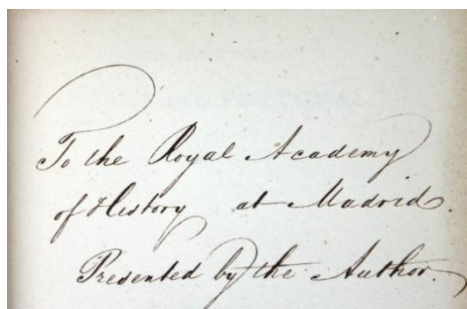 To the Royal Academy
of History at Madrid.
Presented by the Author.